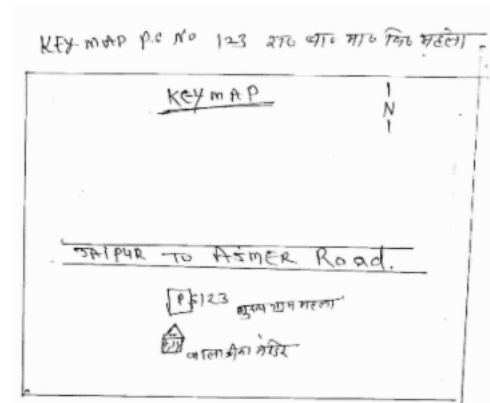 KEY MAP P.C NO 123 रा० बा० मा० वि० महला
KEY MAP
N
JAIPUR TO AJMER Road.
P 123 मुख्य ग्राम महला
बालाजी का मंदिर